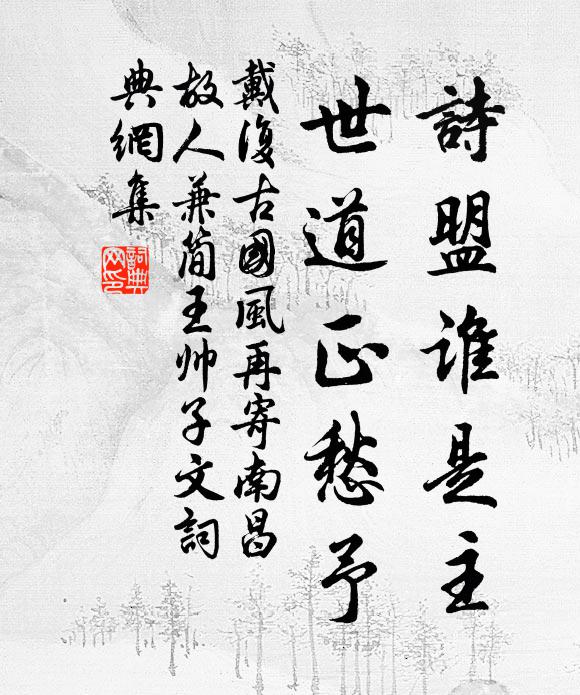 詩盟谁是主
世道正愁予
戴復古國風再寄南昌
故人兼简王帅子文詞
典網集
詞典网印